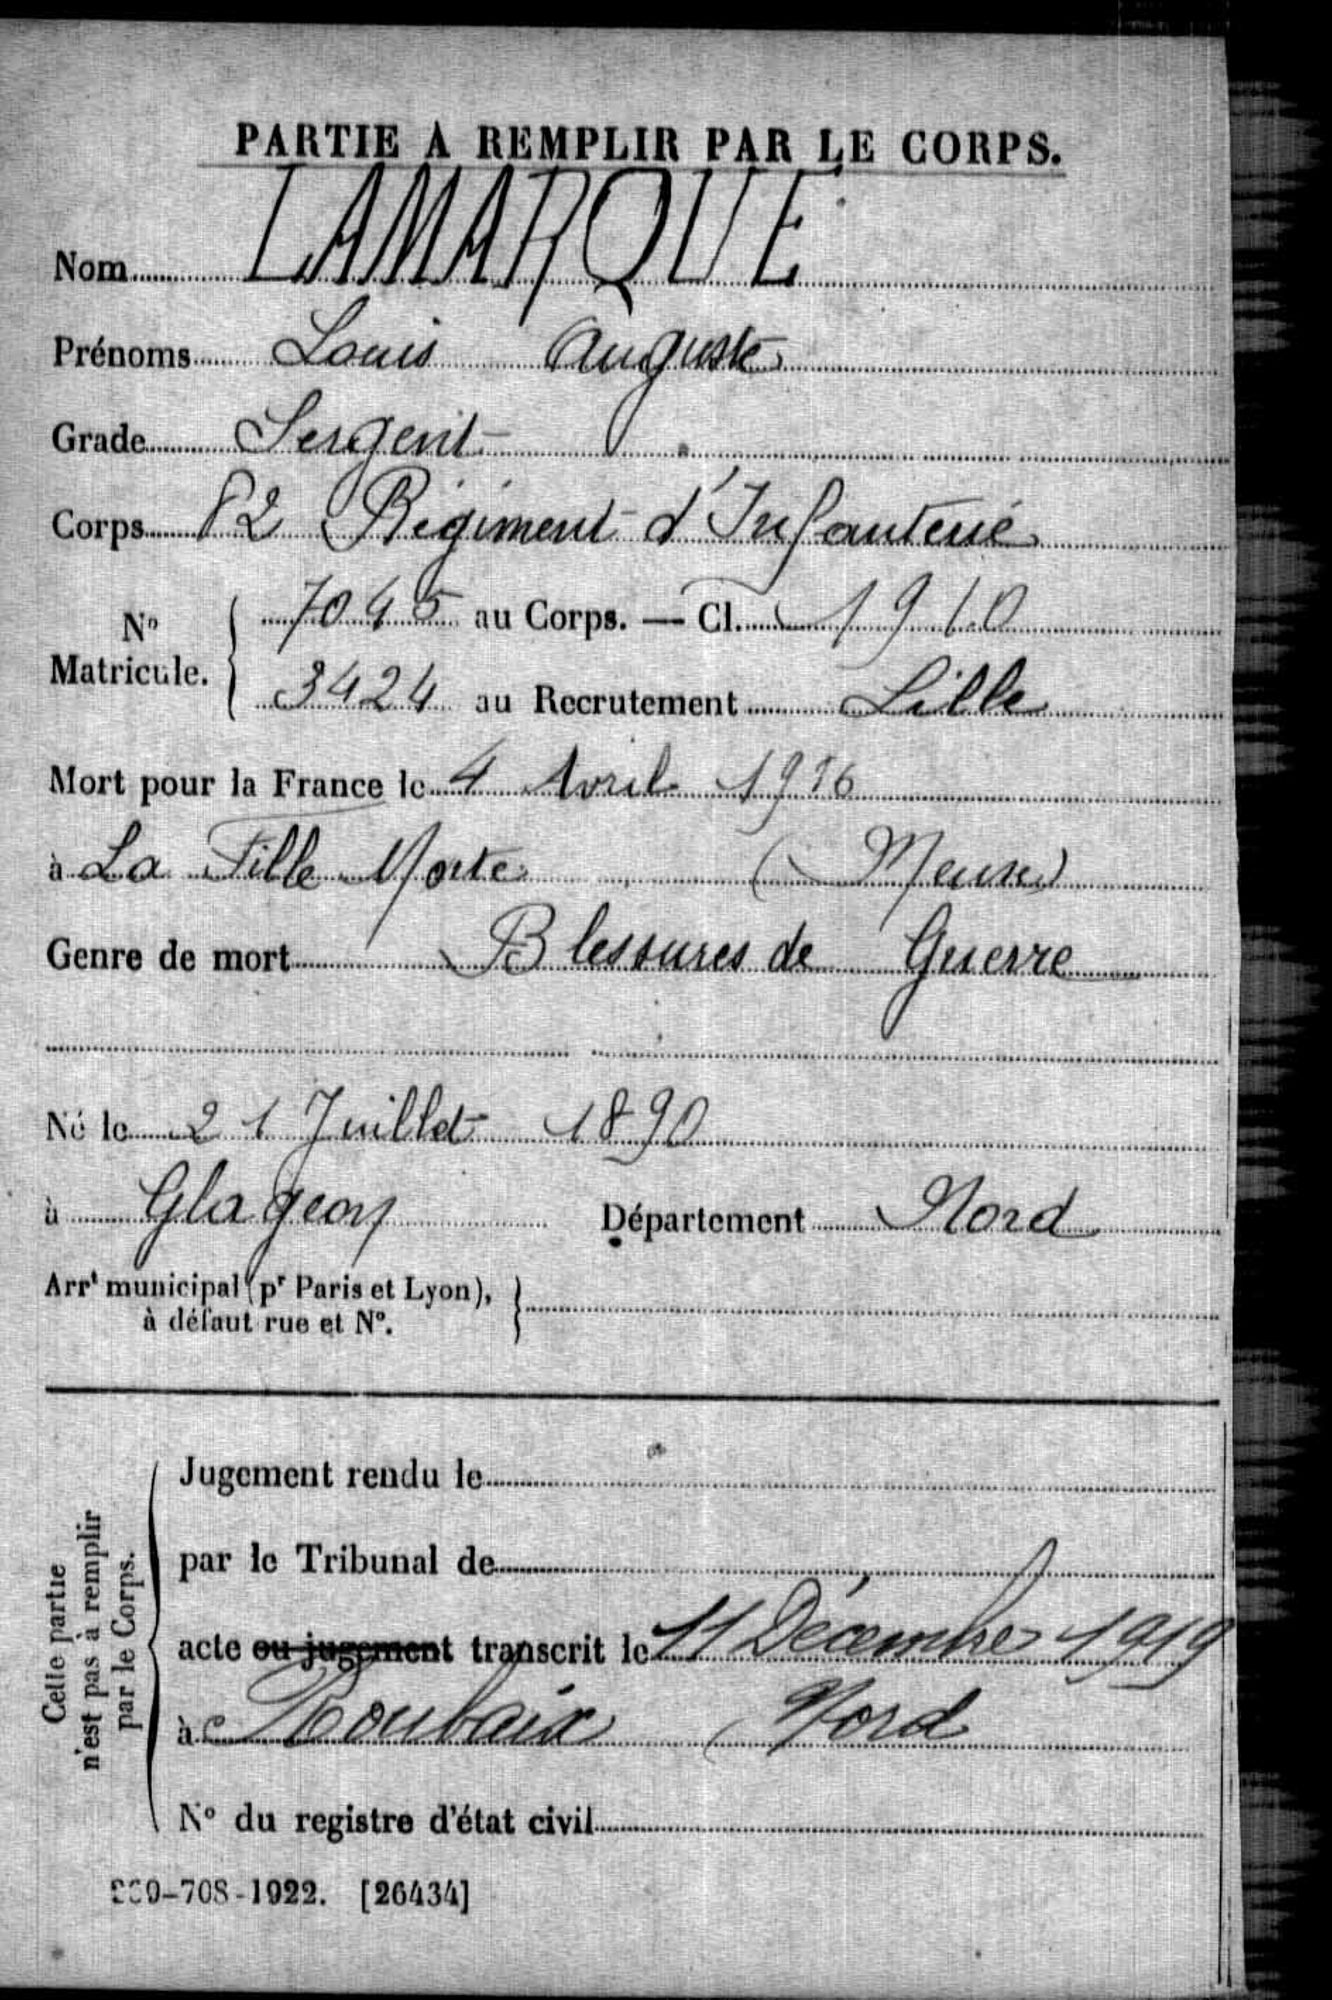 PARTIE A REMPLIR PAR LE CORPS.
Nom LAMARQUE
Prénoms Louis Auguste
Grade Sergent
Corps 82 Régiment d'Infanterie
N° Matricule. 7045 au Corps. — Cl. 1910
3424 au Recrutement Lille
Mort pour la France le 4 Avril 1916
à La Fille Morte (Meuse)
Genre de mort Blessures de Guerre
Né le 21 Juillet 1890
à Glageon Département Nord
Arrt municipal (pr Paris et Lyon),
à défaut rue et N°.
Cette partie
n'est pas à remplir
par le Corps.
Jugement rendu le
par le Tribunal de
acte ou jugement transcrit le 11 Décembre 1919
à Roubaix (Nord
N° du registre d'état civil
-708-1922. [26434]